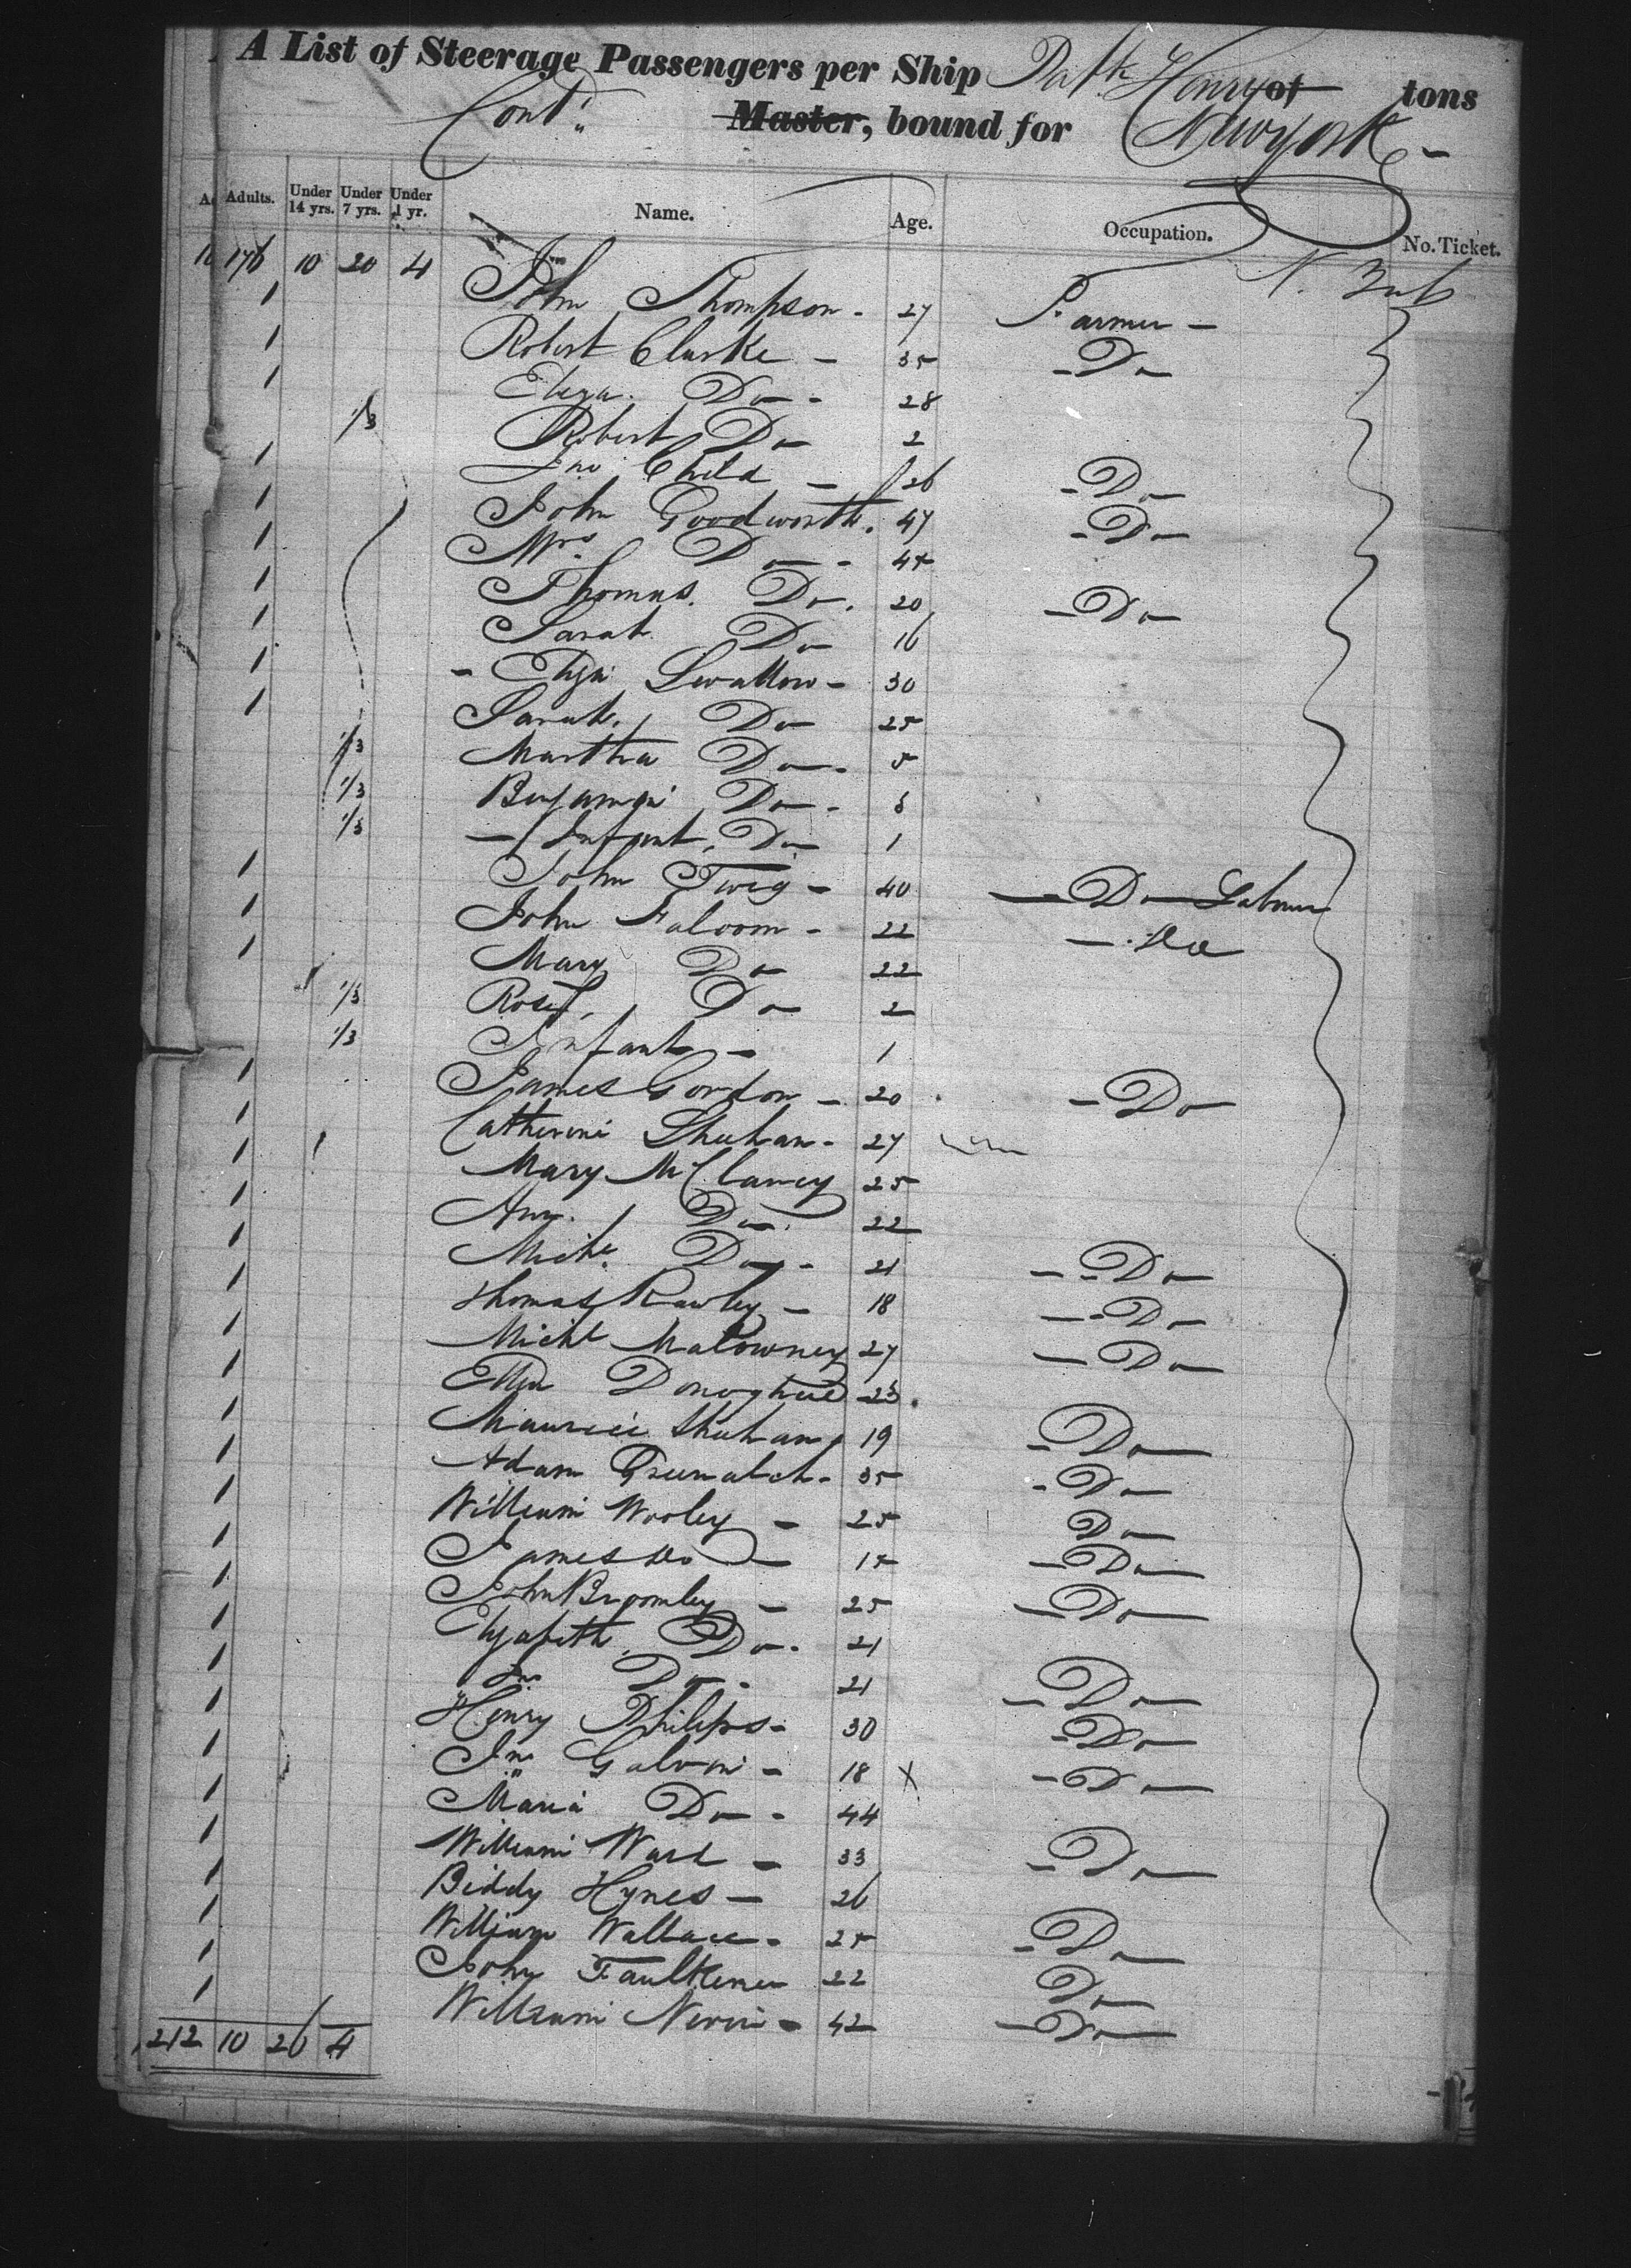 A List of Steerage Passengers per Ship Patk Henry of tons
Contd Master, bound for New York
Adults. Under 14 yrs. Under 7 yrs. Under 1 yr. Name. Age. Occupation. No. Ticket.
176 10 20 4
1 John Thompson - 27 Farmer -
1 Robert Clarke - 35 - Do
1 Eliza. Do - 28
1/3 Robert Do 2
1 Jno Child - 26 - Do
1 John Goodworth. 47 - Do
1 Mrs Do - 44
1 Thomas. Do. 20 - Do
1 Sarah Do 16
1 - Eliza Swallow - 30
1 Sarah. Do 25
1/3 Martha Do - 5
1/3 Benjamin Do - 3
1/3 - Infant, Do 1
1 John Twig - 40 - Do Labourer
1 John Faloom - 22 - Do
1 Mary Do 22
1/3 Rosey, Do 2
1/3 Infant - 1
1 James Gordon - 20 - Do
1 Catherine Sheehan - 27
1 Mary McClancy 25
1 Ann. Do 22
1 Michl. Do - 21 - Do
1 Thomas Rawley - 18 - Do
1 Michl Malowney 27 - Do
1 Ellen Donoghue 23.
1 Maurice Sheehan 19 - Do
1 Adam 35 - Do
1 William Wooley - 25 Do
1 James Do - 15 - Do
1 John Bromley - 25 - Do
1 Elizabeth, Do - 21
1 Jno Do - 21 - Do
1 Henry Philips - 30 - Do
1 Jno Galvin - 18 X - Do
1 Maria Do - 44
1 William Ward - 33 - Do
1 Biddy Hynes - 26
1 William Wallace - 25 - Do
1 John Faulkener 22 Do
1 William Nevin - 42 - Do
212 10 26 4